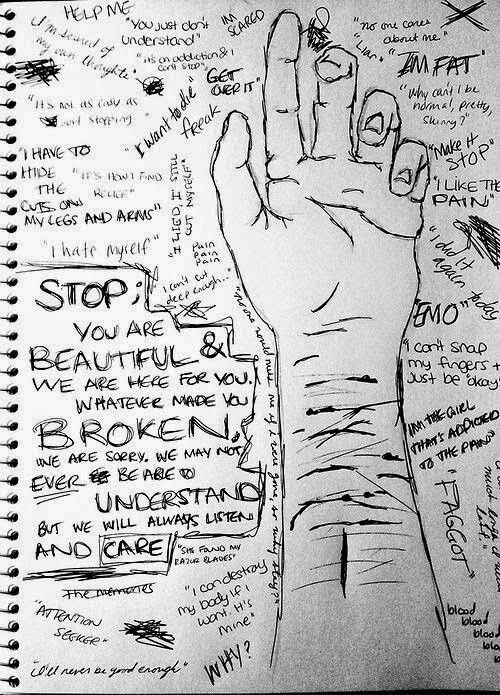 HELP ME
"I'm scared of
my own thoughts"
"You just don't
understand"
IM
SCARED
"it's an addiction & I
can't stop"
"GET
OVER IT"
"no one cares
about me."
"Liar"
"IM FAT"
"Why can't I be
normal, pretty,
skinny?"
"Make it
STOP"
"I LIKE THE
PAIN"
"It's not as easy as
just stopping"
"I want to die
freak
"I HAVE TO
HIDE
THE
CUTS ON
MY LEGS AND ARMS"
"IT'S HOW I FIND
RELIEF"
"I LIED, I STILL
CUT MYSELF"
Pain
Pain
Pain
"I hate myself"
"I can't cut
deep enough..."
"I did it
again today
"EMO"
"I can't snap
my fingers +
just be okay"
STOP;
YOU ARE
BEAUTIFUL &
WE ARE HERE FOR YOU.
WHATEVER MADE YOU
BROKEN,
WE ARE SORRY. WE MAY NOT
EVER BE ABLE TO
UNDERSTAND
BUT WE WILL ALWAYS LISTEN
AND CARE
IM THE GIRL
THAT'S ADDICTED
TO THE PAIN
"FAGGOT"
"SHE FOUND MY
RAZOR BLADES"
the memories
"ATTENTION
SEEKER"
"I can destroy
my body if I
want. It's
mine"
WHY?
"I'll never be good enough"
blood
blood
blood